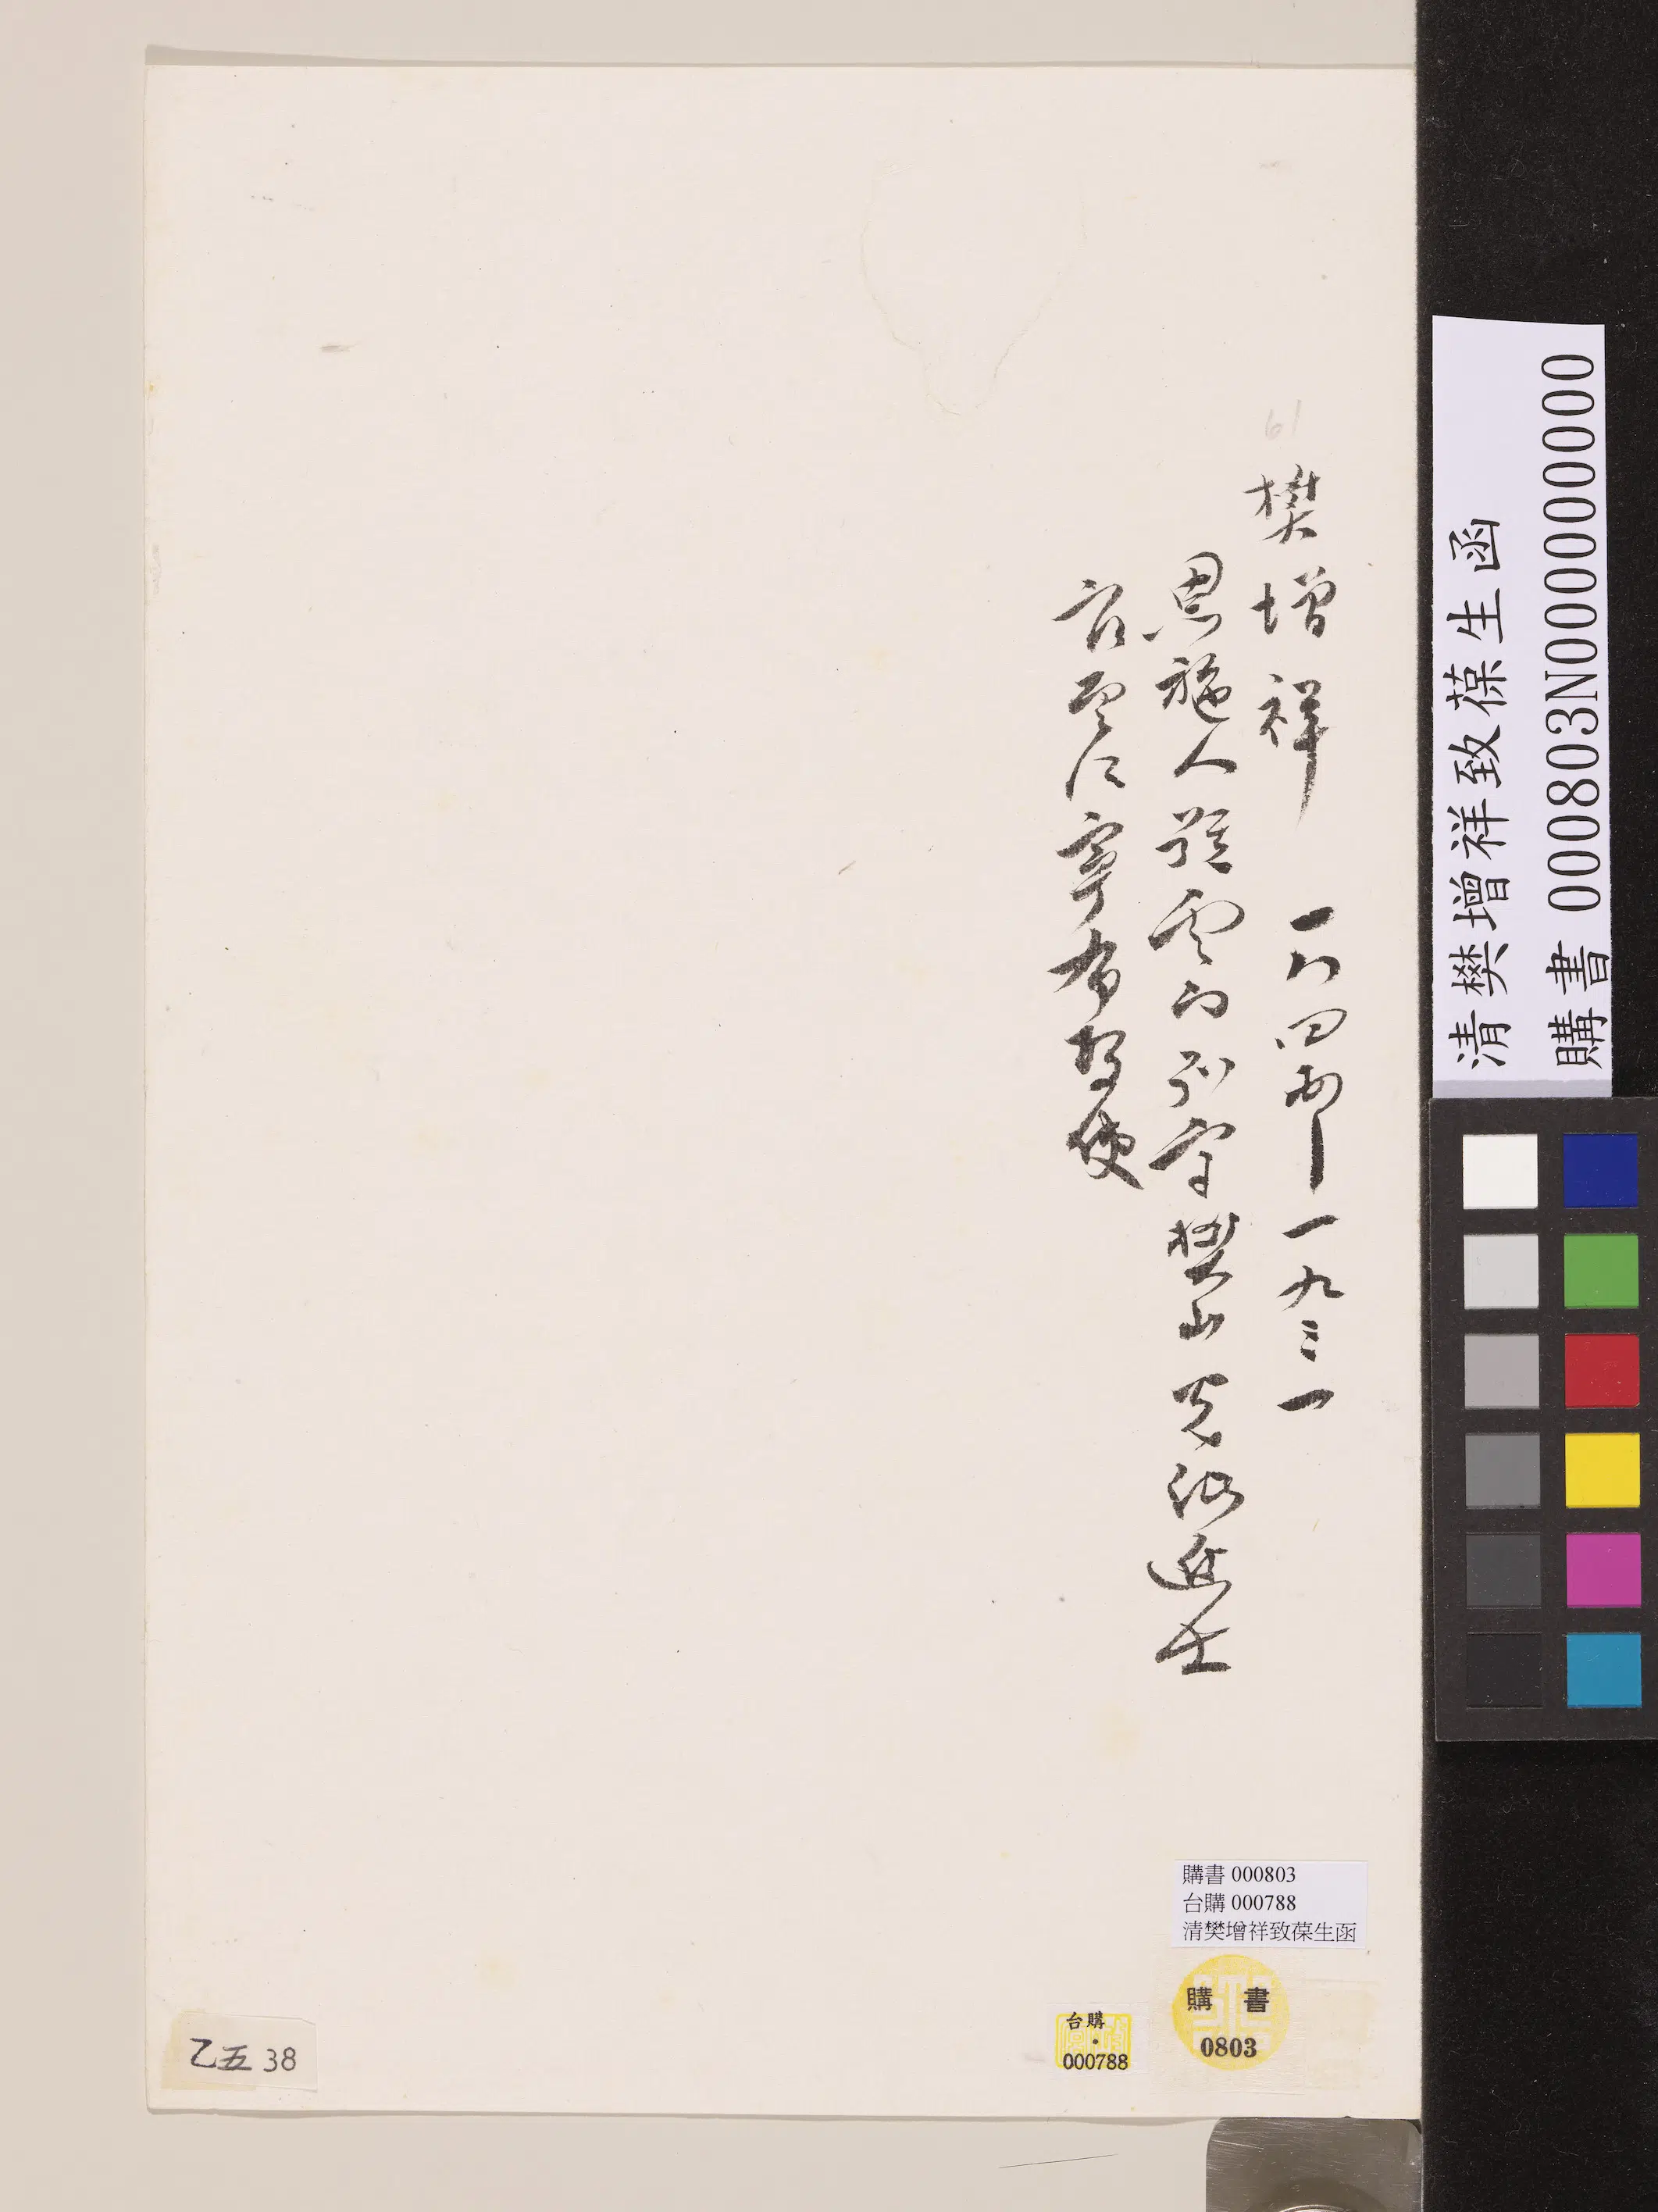 61
樊增祥 一八四六—一九三一
恩施人號雲門別字樊山光緒進士
官至江寧布政使
清樊增祥致葆生函
購書 000803N000000000
購書 000803
台購 000788
清樊增祥致葆生函
購書
0803
台購
000788
乙五 38